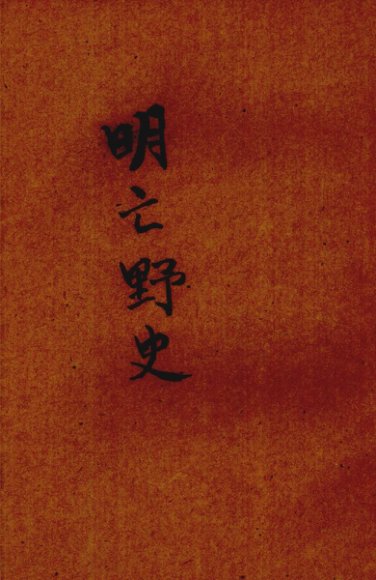 明亡野史